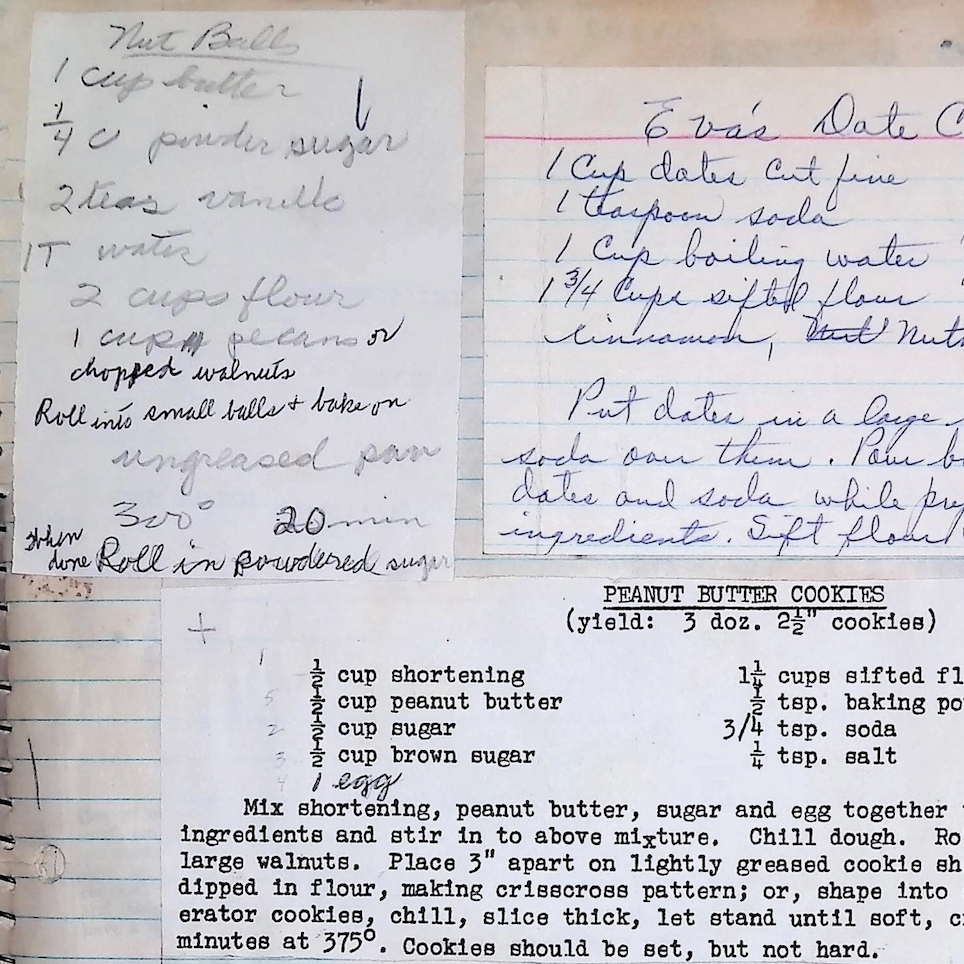 Nut Balls
1 cup butter
1/4 C powder sugar
2 teas vanilla
1T water
2 cups flour
1 cup pecans or
chopped walnuts
Roll into small balls + bake on
ungreased pan
300° 20 min
when
done Roll in powdered sugar
Eva's Date C
1 Cup dates cut fine
1 teaspoon soda
1 Cup boiling water
1 3/4 Cups sifted flour
Cinnamon, Nut Nuts
Put dates in a large
soda over them. Pour b
dates and soda while prep
ingredients. Sift flour
PEANUT BUTTER COOKIES
(yield: 3 doz. 2½" cookies)
1 ½ cup shortening 1¼ cups sifted fl
5 ½ cup peanut butter ½ tsp. baking po
2 ½ cup sugar 3/4 tsp. soda
3 ½ cup brown sugar ¼ tsp. salt
4 1 egg
Mix shortening, peanut butter, sugar and egg together
ingredients and stir in to above mixture. Chill dough. Ro
large walnuts. Place 3" apart on lightly greased cookie sh
dipped in flour, making crisscross pattern; or, shape into
erator cookies, chill, slice thick, let stand until soft, c
minutes at 375°. Cookies should be set, but not hard.